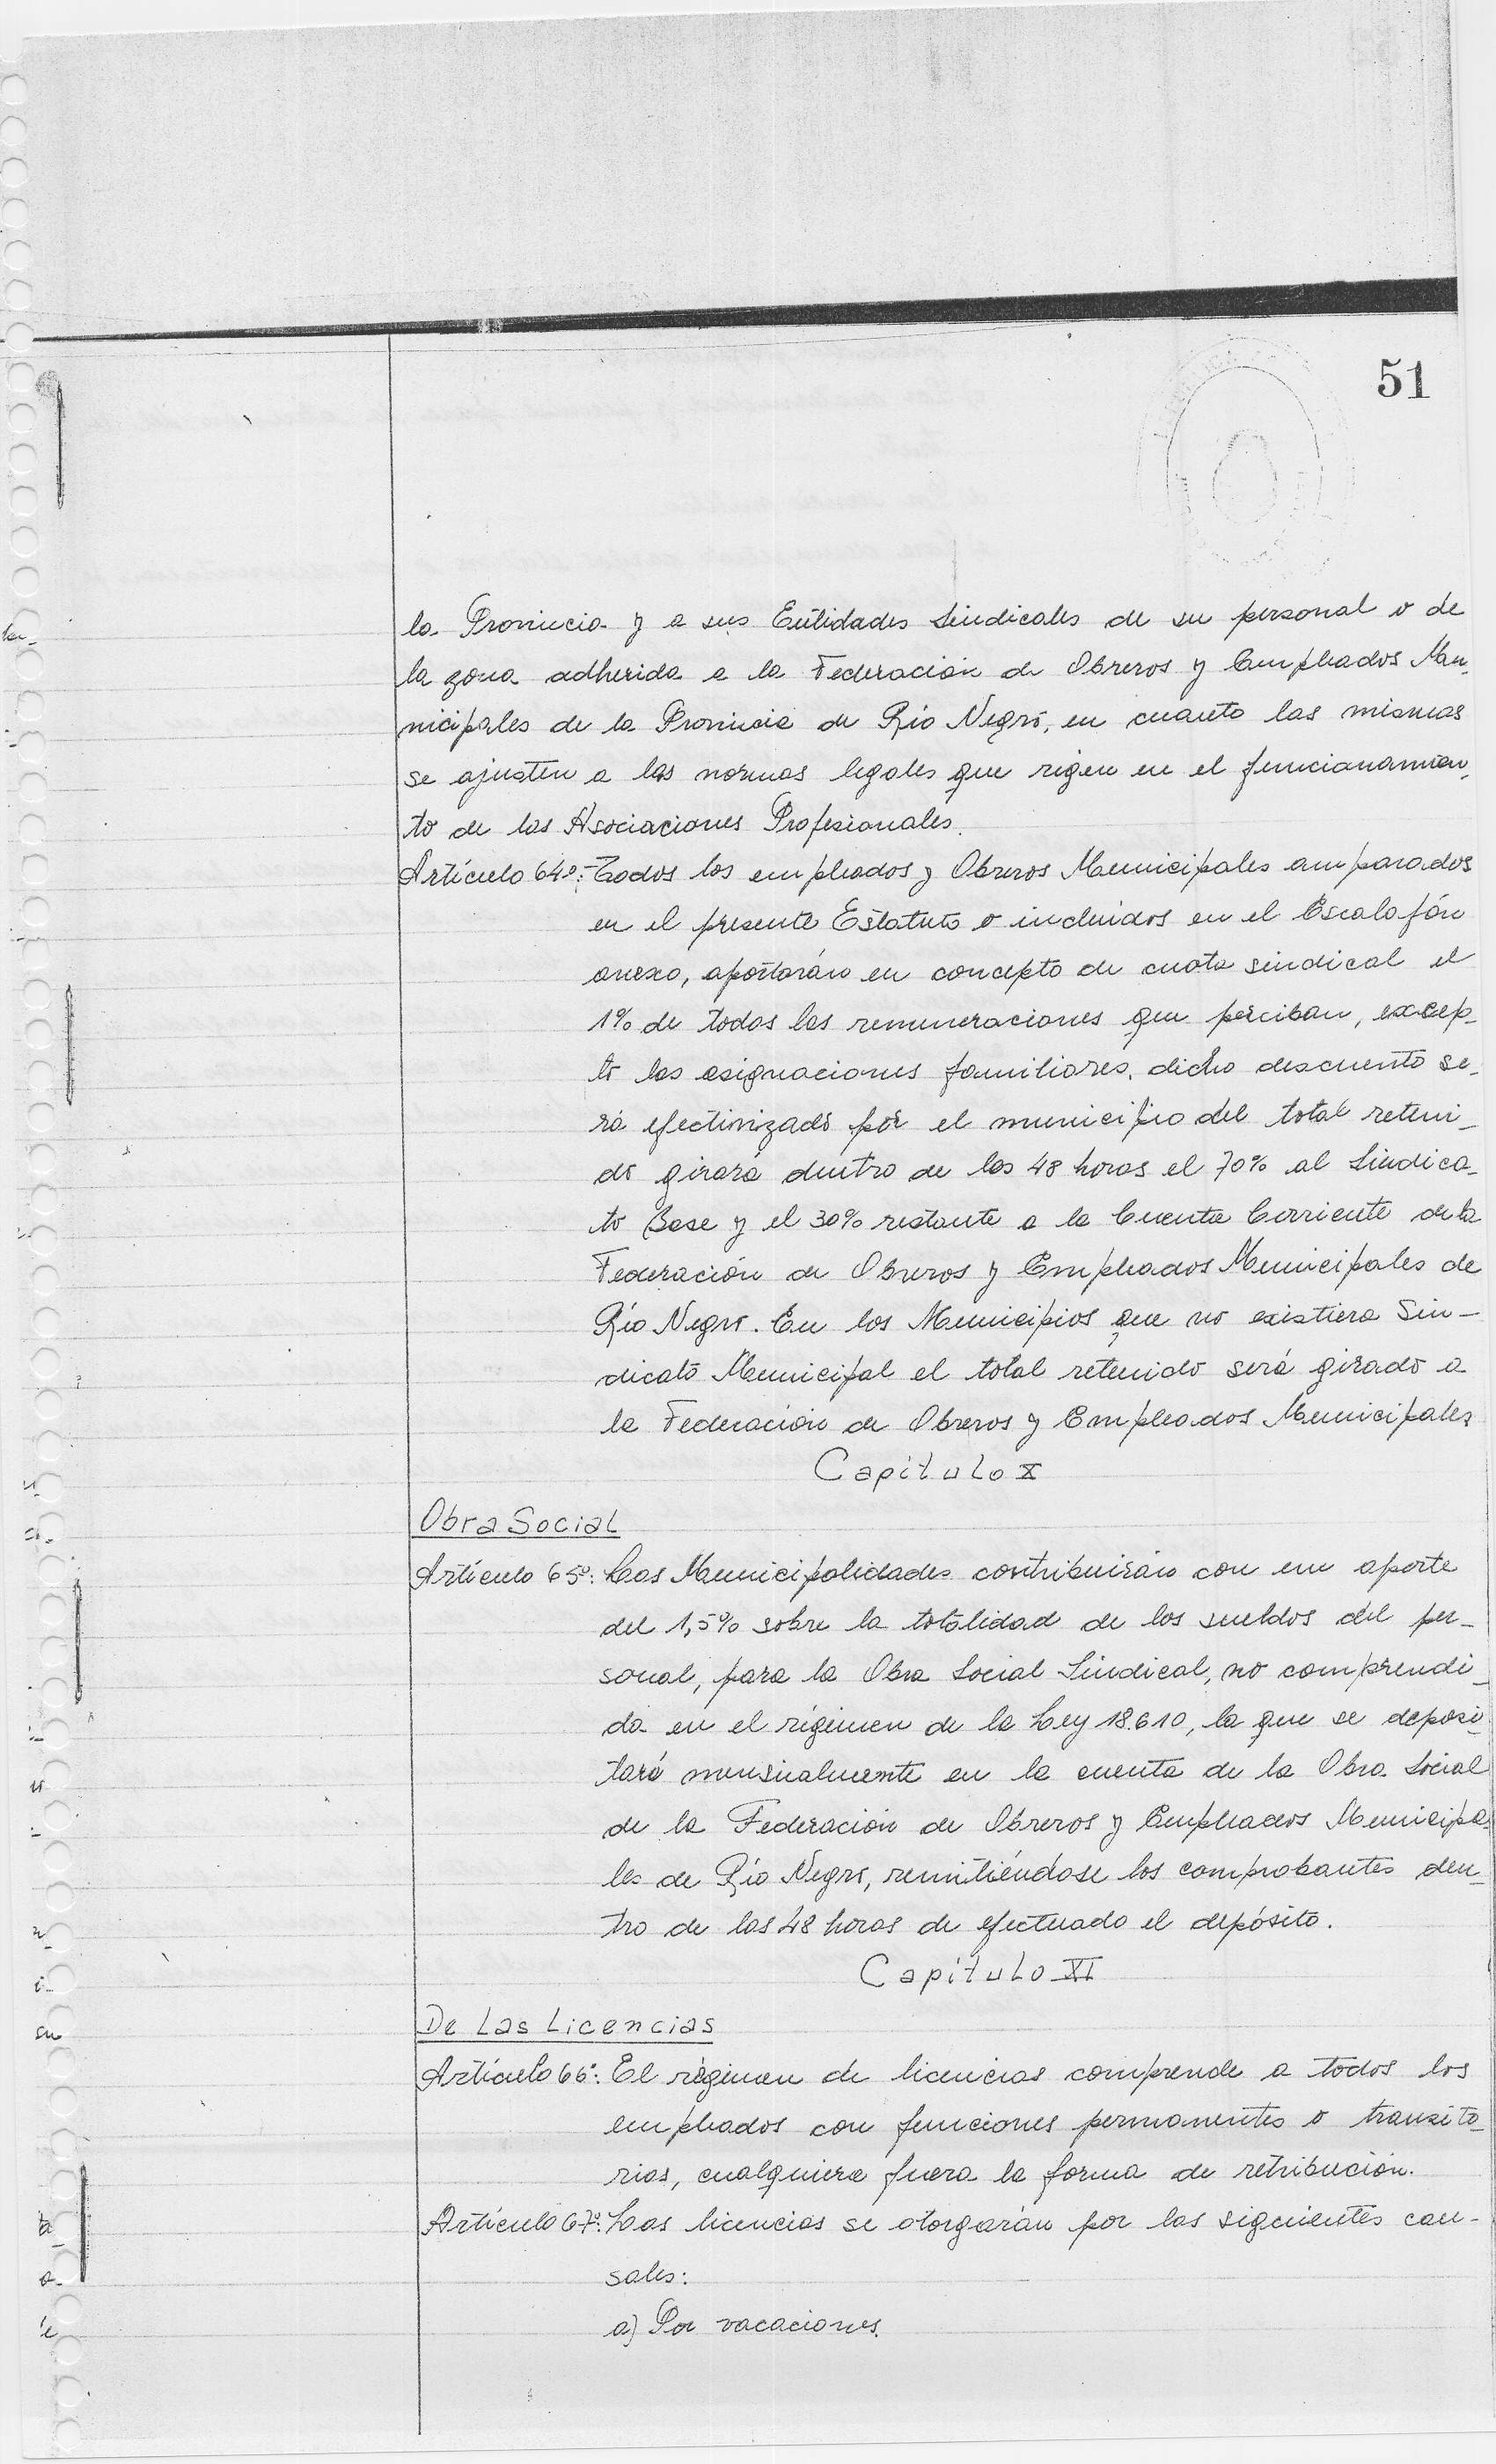 51
la Provincia y a sus Entidades Sindicales de su personal o de
la zona adherida a la Federación de Obreros y Empleados Mu_
nicipales de la Provincia de Río Negro, en cuanto las mismas
se ajusten a las normas legales que rigen en el funcionamien_
to de las Asociaciones Profesionales.
Artículo 64º:-Todos los empleados y Obreros Municipales amparados
en el presente Estatuto o incluidos en el Escalafón
anexo, aportarán en concepto de cuota sindical el
1% de todas las remuneraciones que perciban, excep_
to las asignaciones familiares, dicho descuento se_
rá efectivizado por el municipio del total reteni_
do girará dentro de las 48 horas el 70% al Sindica_
to Base y el 30% restante a la Cuenta Corriente de la
Federación de Obreros y Empleados Municipales de
Río Negro. En los Municipios que no existiera Sin-
dicato Municipal el total retenido será girado a
la Federación de Obreros y Empleados Municipales
Capítulo X
Obra Social
Artículo 65º: Las Municipalidades contribuirán con un aporte
del 1,5% sobre la totalidad de los sueldos del per_
sonal, para la Obra Social Sindical, no comprendi_
da en el régimen de la Ley 18.610, la que se deposi_
tará mensualmente en la cuenta de la Obra Social
de la Federación de Obreros y Empleados Municipa_
les de Río Negro, remitiéndose los comprobantes den_
tro de las 48 horas de efectuado el depósito.
Capítulo XI
De Las Licencias
Artículo 66º: El régimen de licencias comprende a todos los
empleados con funciones permanentes o transito_
rias, cualquiera fuera la forma de retribución.
Artículo 67º: Las licencias se otorgarán por las siguientes cau-
sales:
a) Por vacaciones.